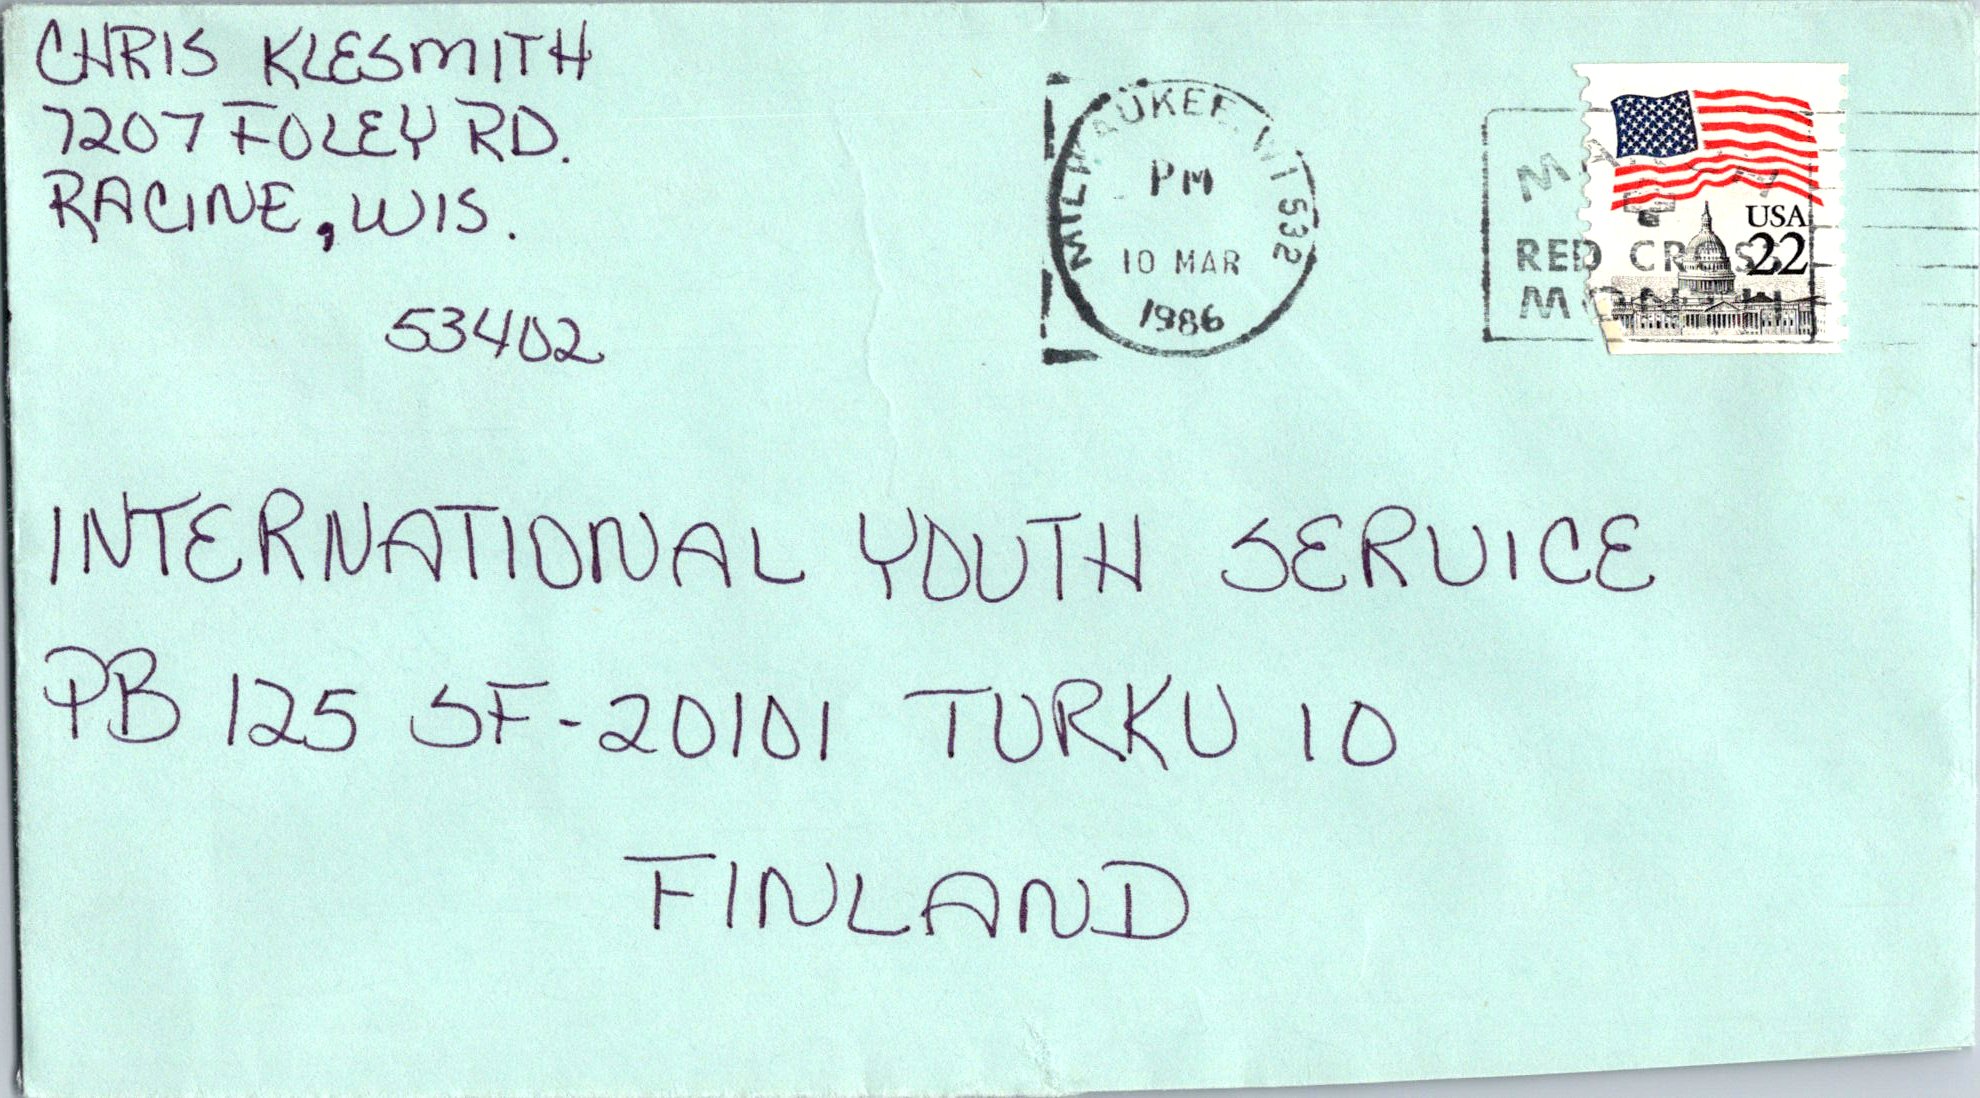 CHRIS KLESMITH
7207 FOLEY RD.
RACINE, WIS.
53402
MILWAUKEE, WI 532
PM
10 MAR
1986
RED CROSS
USA
22
INTERNATIONAL YOUTH SERVICE
PB 125 SF-20101 TURKU 10
FINLAND